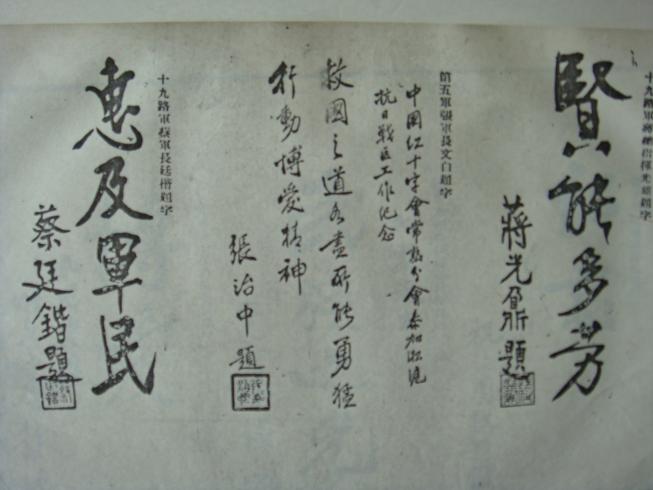 十九路軍蔣總指揮光鼐題字
賢能多劳
蔣光鼐題
第五軍張軍長文白題字
中国红十字會常熟分會参加淞滬
抗日戰區工作纪念
救國之道各盡所能勇猛
行動博愛精神
張治中題
十九路軍蔡軍長廷楷題字
惠及軍民
蔡廷鍇題